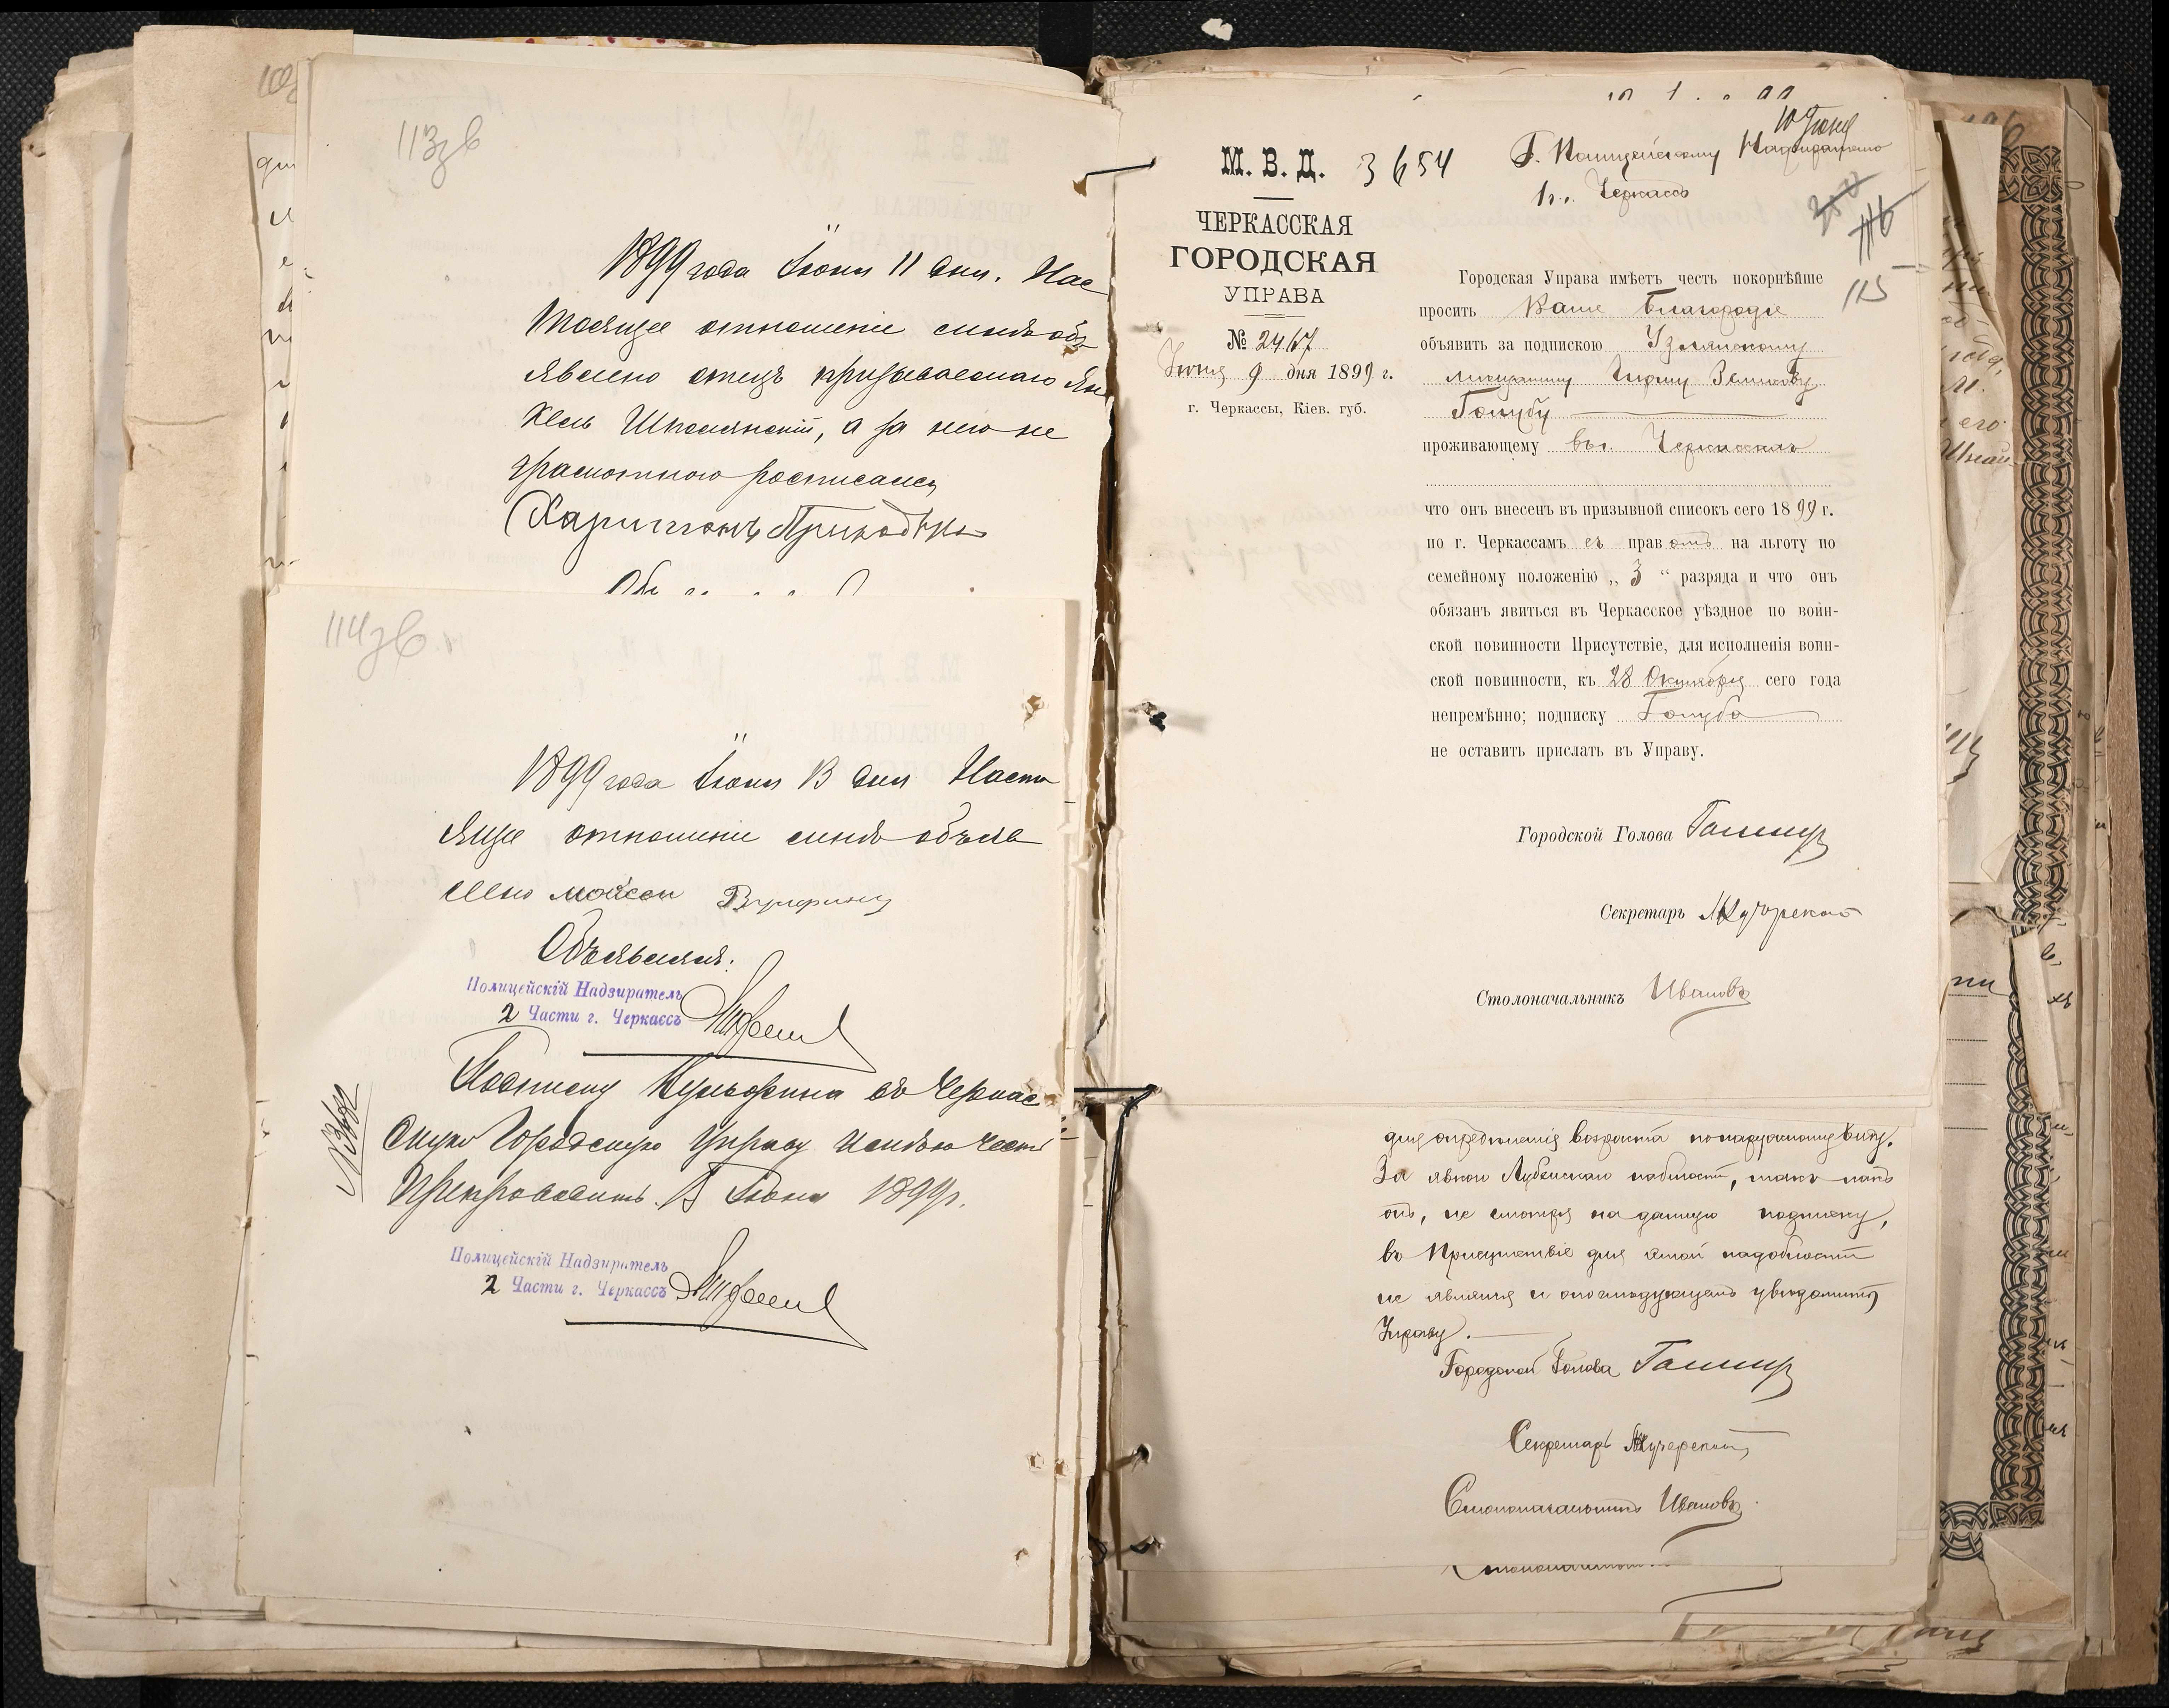 113 зв
1899 года Іюня 11 дня. Нас
тоящее отношеніе мною объ
явлено отецъ призываемаго Ян
кель Шполянскій, а за него не
грамотного росписался
Харитонъ Приходько
114 зв
1899 года Іюня 13 дня Насто
ящее отношеніе мною объяв
лено Мойсею
Объявилъ:
Полицейскій Надзиратель
2 Части г. Черкассъ
Подписку Вульфина въ Черкас
скую Городскую Управу имѣю честь
препроводить. 13 Іюня 1899 г.
Полицейскій Надзиратель
2 Части г. Черкассъ
10 Іюня
М. В. Д. 3654
Г. Полицейскому Надзирателю
1 ч. г. Черкассъ
116
115
ЧЕРКАССКАЯ
ГОРОДСКАЯ
УПРАВА
№ 2467
Іюня 9 дня 1899 г.
г. Черкассы, Кіев. губ.
Городская Управа имѣетъ честь покорнѣйше
просить Ваше Благородіе
объявить за подпискою
мѣщанину
Голубу
проживающему въ г. Черкассахъ
что онъ внесенъ въ призывной списокъ сего 1899 г.
по г. Черкассамъ съ правомъ на льготу по
семейному положенію „ 3 “ разряда и что онъ
обязанъ явиться въ Черкасское уѣздное по воин-
ской повинности Присутствіе, для исполненія воин-
ской повинности, къ 28 Октября сего года
непремѣнно; подписку Голуба
не оставить прислать въ Управу.
Городской Голова
Секретарь
Столоначальникъ Ивановъ
для опредѣленія возраста по наружному виду.
За явкою наблюсти, такъ какъ
онъ, не смотря на данную подписку,
въ Присутствіе для этой надобности
не явился и о послѣдующемъ увѣдомить
Управу.
Городской Голова
Секретарь
Столоначальникъ Ивановъ